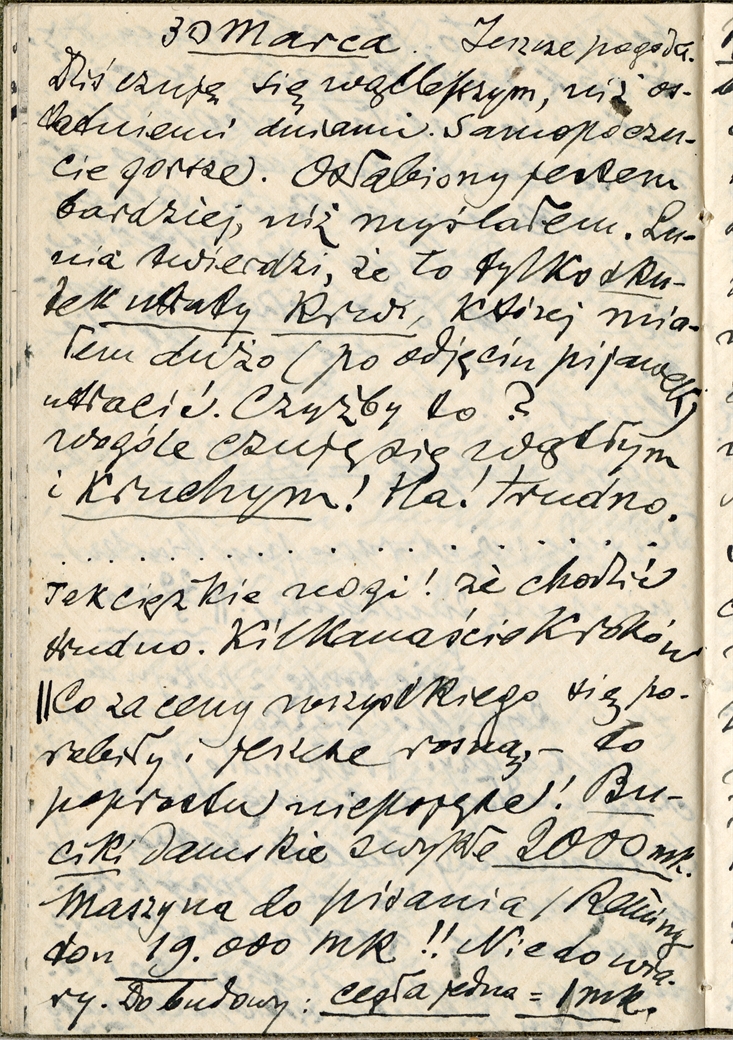 30 Marca. Jeszcze pogoda.
Dziś czuję się wątlejszym, niż os-
tatniemi dniami. Samopoczu-
cie gorsze. Osłabiony jestem
bardziej, niż myślałem. Lu-
nia twierdzi, że to tylko sku-
tek utraty krwi, której mia-
łem dużo (po odjęciu pijawek)
utracić. Czyżby to?
wogóle czuję się wątłym
i kruchym! Ha! trudno.
. . . . . . . . . . . . . .
Tak ciężkie nogi! że chodzić
trudno. Kilkanaście kroków
||Co za ceny wszystkiego się po-
robiły i jeszcze rosną, – to
poprostu niepojęte! Bu-
ciki damskie zwykłe 2000 mk.
Maszyna do pisania (Reming
ton 19.000 mk!! Nie do wia-
ry. Do budowy: cegła jedna = 1 mk.